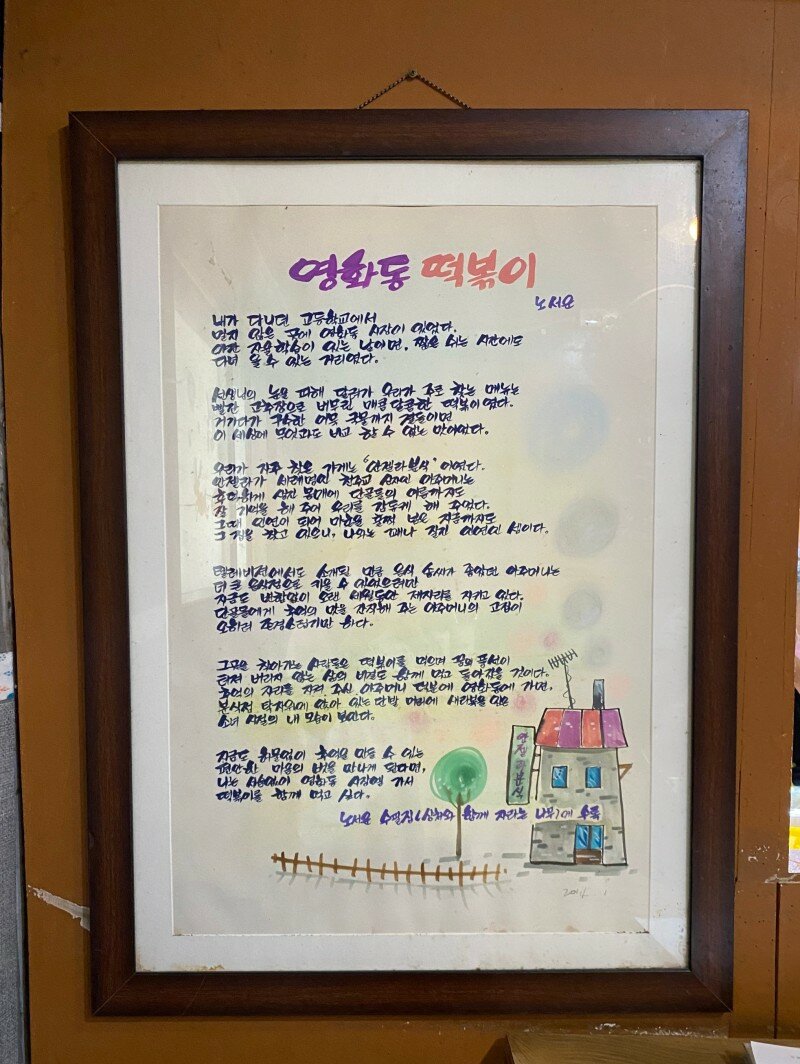 영화동 떡볶이
노서요
내가 다니던 고등학교에서
멀지 않은 곳에 영화동 시장이 있었다.
야간 자율학습이 있는 날이면, 짧은 쉬는 시간에도
다녀 올 수 있는 거리였다.
선생님의 눈을 피해 달려가 우리가 주로 찾는 메뉴는
빨간 고추장으로 버무린 매콤달콤한 떡볶이였다.
거기다가 구수한 어묵 국물까지 곁들이면
이 세상에 무엇과도 비교 할 수 없는 맛이었다.
우리가 자주 찾은 가게는 "안젤라분식" 이었다.
안젤라가 세례명인 천주교 신자인 아주머니는
후덕하게 생긴 몸매에 단골들의 이름까지도
잘 기억을 해 주어 우리를 감동케 해 주었다.
그때 인연이 되어 마흔을 훌쩍 넘은 지금까지도
그 집을 찾고 있으니, 나와는 꽤나 질긴 인연인 셈이다.
텔레비전에서도 소개될 만큼 음식 솜씨가 좋았던 아주머니는
더 큰 음식점으로 키울 수 있었으련만
지금도 변함없이 오랜 세월동안 제자리를 지키고 있다.
단골들에게 추억의 맛을 간직해 주는 아주머니의 고집이
오히려 존경스럽기만 하다.
그곳을 찾아가는 사람들은 떡볶이를 먹으며 꿈의 풍선이
터져 버리지 않는 삶의 비결도 함께 먹고 돌아갔을 것이다.
추억의 자리를 지켜 주신 아주머니 덕분에 영화동에 가면,
분식점 탁자위에 앉아 있는 단발 머리에 새교복을 입은
소녀 시절의 내 모습이 보인다.
지금도 허물없이 추억을 만들 수 있는
편안한 마음의 벗을 만나게 된다면,
나는 서슴없이 영화동 시장에 가서
떡볶이를 함께 먹고 싶다.
노서요 수필집 (상처와 함께 자라는 나무)에 수록
안젤라분식